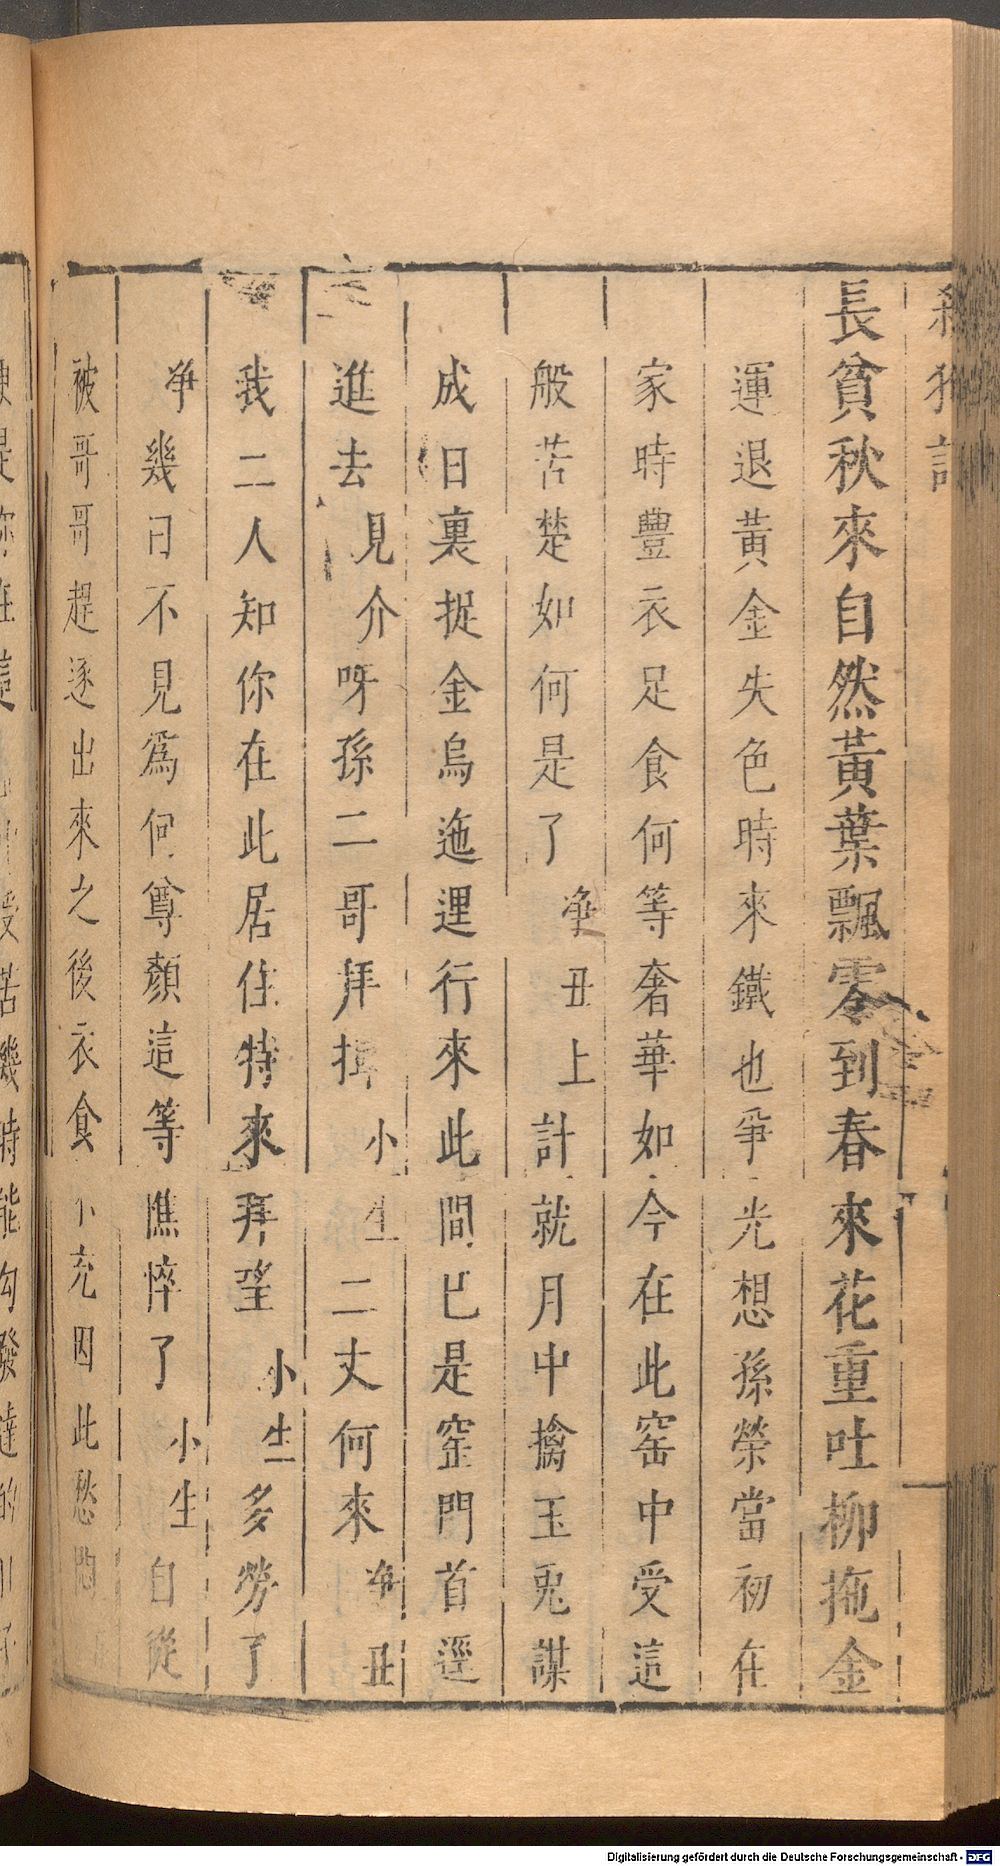 殺狗記
長貧秋來自然黃葉飄零到春來花重吐柳拖金
運退黃金失色時來鐵也爭光想孫榮當初在
家時豐衣足食何等奢華如今在此窑中受這
般苦楚如何是了淨丑上計就月中擒玉兎謀
成日裏捉金烏迤逕行來此間已是窑門首逕
進去見介呀孫二哥拜揖小生二丈何來淨丑
我二人知你在此居住特來拜望小生多勞了
淨幾日不見爲何尊顏這等憔悴了小生自從
被哥哥趕逐出來之後衣食不充因此愁悶
Digitalisierung gefördert durch die Deutsche Forschungsgemeinschaft - DFG